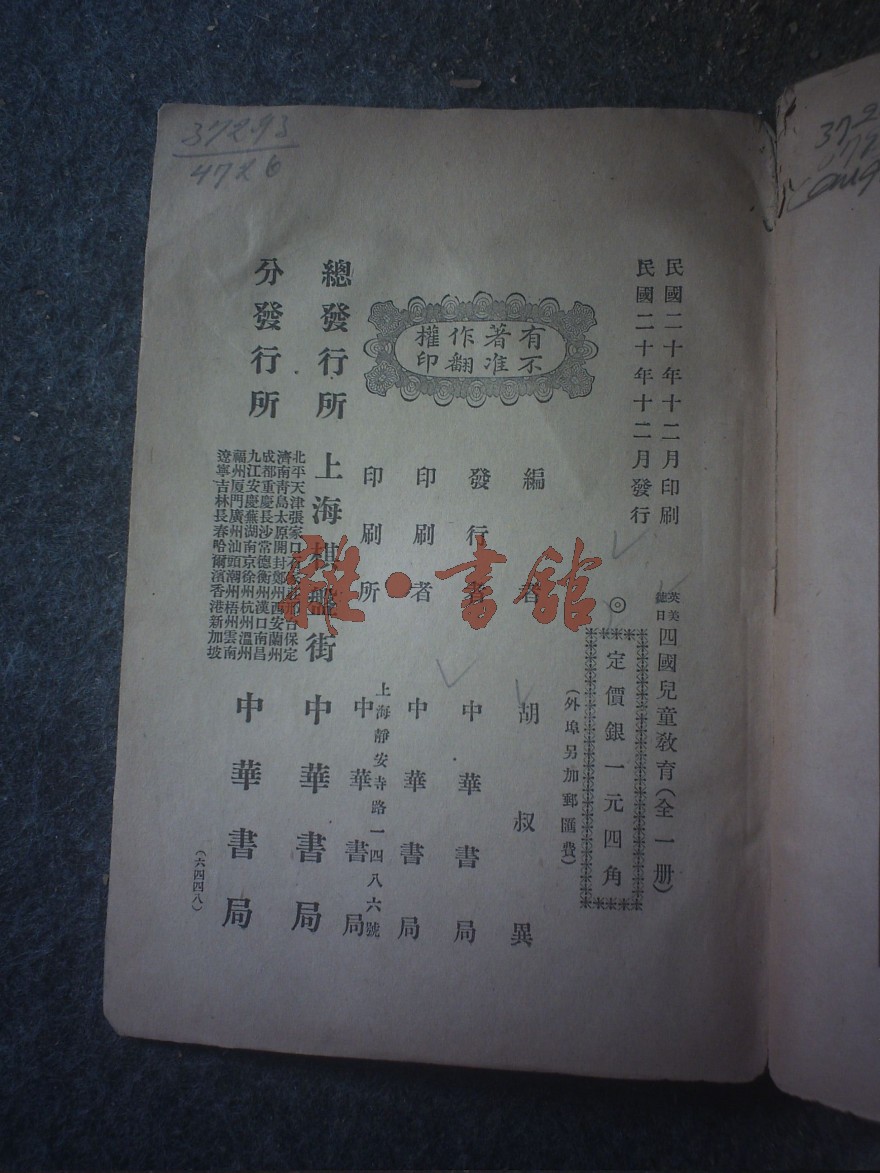 民國二十年十二月印刷
民國二十年十二月發行
英美德日四國兒童教育(全一册)
◎定價銀一元四角
(外埠另加郵匯費)
有著作權
不准翻印
編者 胡叔異
發行者 中華書局
印刷者 中華書局
印刷所 上海靜安寺路一四八六號 中華書局
總發行所 上海棋盤街 中華書局
分發行所 中華書局
北平天津張家口 邢台保定
濟南青島太原開封鄭州西安蘭州
成都重慶長沙常德衡州漢口南昌
九江安慶蕪湖南京徐州杭州溫州
福州厦門廣州汕頭潮州梧州雲南
遼寧吉林長春哈爾濱香港新加坡
(六四四八)
372.93
4726
雜·書館